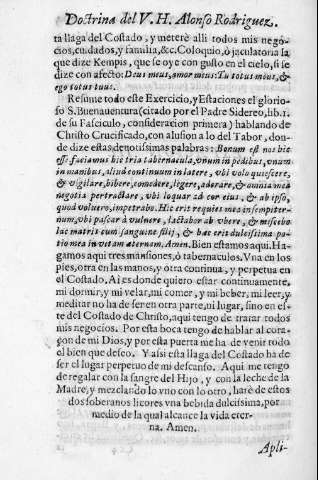 Doctrina del V. H. Alonso Rodriguez.
ta llaga del Costado, y meterè alli todos mis nego-
cios, cuidados, y familia, &c. Coloquio, ò jaculatoria la
que dize Kempis, que se oye con gusto en el cielo, si se
dize con afecto: Deus meus, amor meus: Tu totus meus, &
ego totus tuus.
Resume todo este Exercicio, y Estaciones el glorio-
so S. Buenauencura (citado por el Padre Sidereo, lib. 1.
de su Fasciculo, consideracion primera) hablando de
Christo Crucificado, con alusion a lo del Tabor, don-
de dize estas deuotissimas palabras: Bonum est nos hic
esse faciamus hic tria tabernacula, vnum in pedibus, vnum
in manibus, aliud continuum in latere, vbi volo quiescere,
& vigilare, bibere, comedere, legere, adorare, & omnia mea
negotia pertractare, vbi loquar ad cor eius, & ab ipso,
quod voluero, impetrabo. Hic erit requies mea in sempiter-
num, vbi pascar à vulnere, lactabor ab vbere, & miscebo
lac matris cum sanguine filij, & hæc erit dulcissima po-
tio mea in vitam æternam. Amen. Bien estamos aqui. Ha-
gamos aqui tres mansiones, ò tabernaculos. Vna en los
pies, otra en las manos, y otra continua, y perpetua en
el Costado. Ai es donde quiero estar continuamente,
mi dormir, y mi velar, mi comer, y mi beber, mi leer, y
meditar no ha de ser en otra parte, ni lugar, sino en es-
te del Costado de Christo, aqui tengo de tratar todos
mis negocios. Por esta boca tengo de hablar al cora-
çon de mi Dios, y por esta puerta me ha de venir todo
el bien que deseo. Y assi esta llaga del Costado ha de
ser el lugar perpetuo de mi descanso. Aqui me tengo
de regalar con la sangre del Hijo, y con la leche de la
Madre, y mezclando lo vno con lo otro, harè de estos
dos soberanos licores vna bebida dulcissima, por
medio de la qual alcance la vida eter-
na. Amen.
Apli-